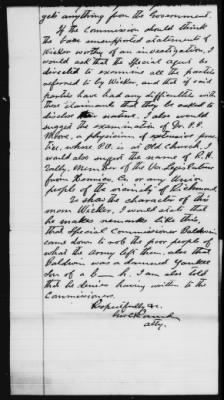 gets anything from the Government
If the Commission should think
the base unsupported statement of
Wicker worthy of an investigation, I
would ask that the Special agent be
directed to examine all the parties
referred to by Wicker, and that if said
parties have had any difficulties with
these claimants that they be asked to
disclose their nature. I also would
suggest the examination of Dr. P. P.
a physician of extensive prac-
tice, whose P.O. is at Old Church. I
would also suggest the name of R. H.
Member of the Va. Legislature
from Henrico Co or any
people of the vicinity of Richmond.
To show the character of this
man Wicker, I would state that
he makes remarks like this,
that Special Commissioner Baldwin
came down to rob the poor people of
what the Army left them, also that
Baldwin was a damned Yankee
Son of a b—h. I am also told
that he denies having written to the
Commissioners.
Respectfully &c.
Atty.